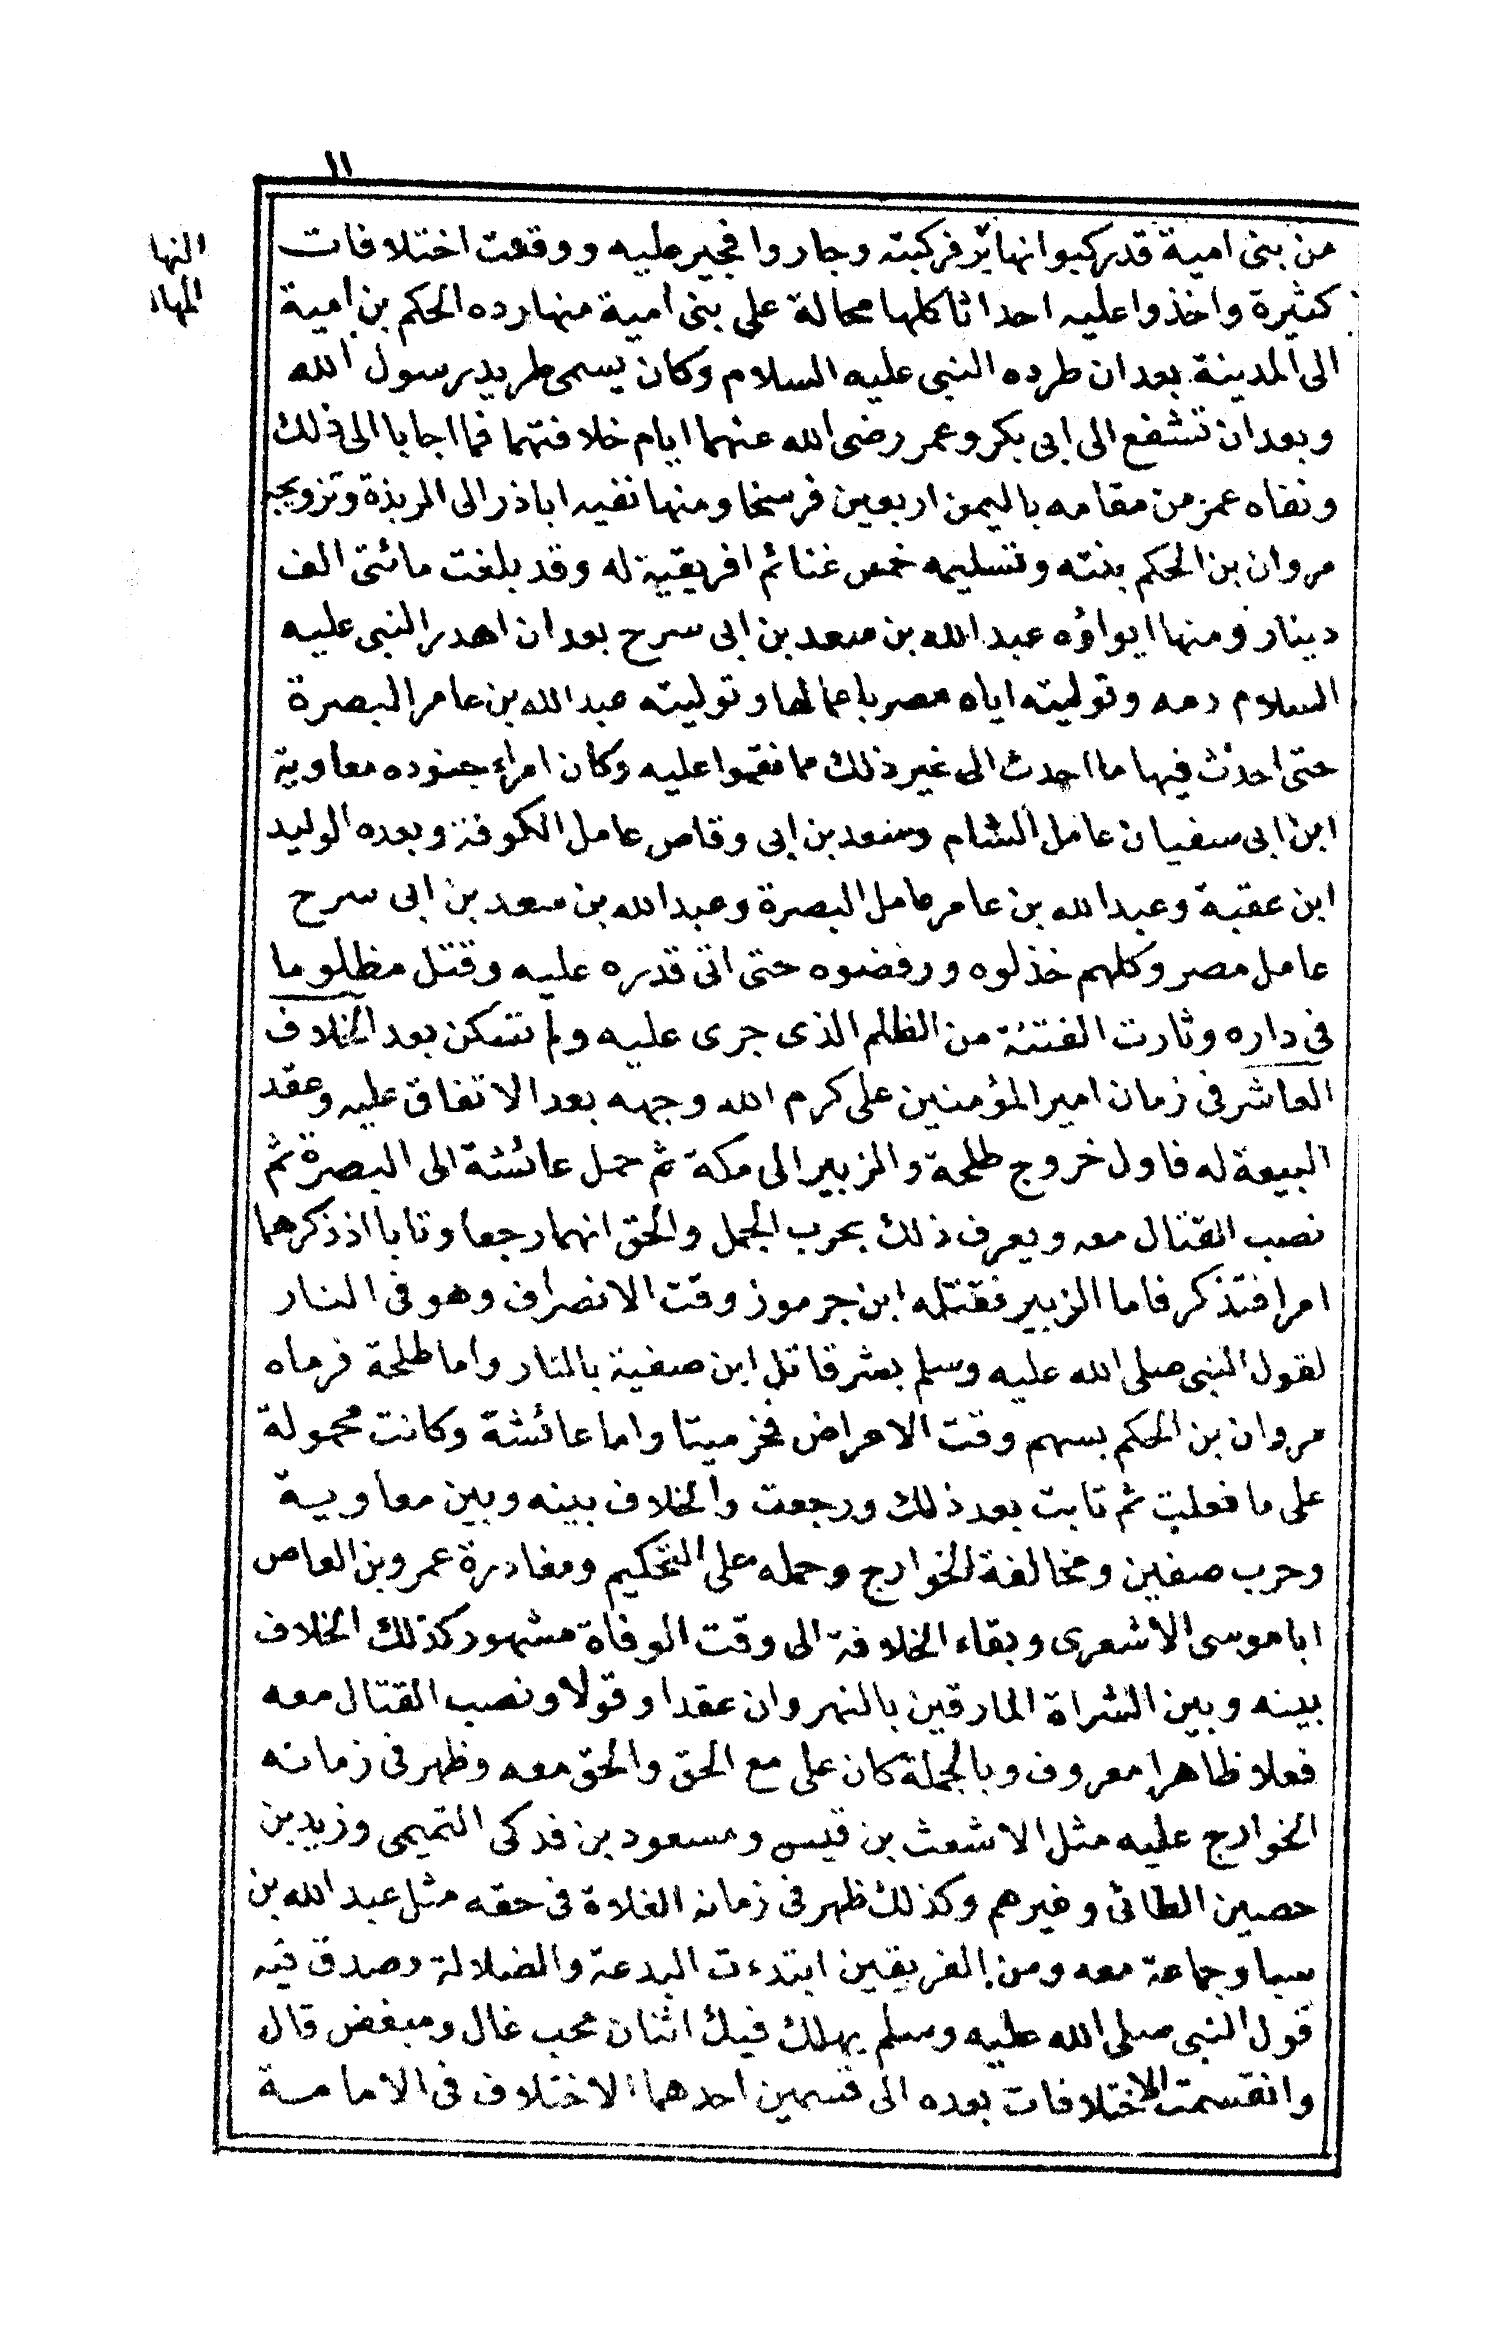 ١١
النها
المها
من بنى امية قدركبوا نهابر فركبته وجاروا فجير عليه ووقعت اختلافات
كثيرة واخذوا عليه احداثا كلها محالة على بنى امية منها رده الحكم بن امية
الى المدينة بعد ان طرده النبى عليه السلام وكان يسمى طريد رسول الله
وبعد ان تشفع الى ابى بكر وعمر رضى الله عنهما ايام خلافتهما فما اجابا الى ذلك
ونفاه عمر من مقامه باليمن اربعين فرسخا ومنها نفيه اباذر الى الربذة وتزويجه
مروان بن الحكم بنته وتسليمه خمس غنائم افريقية له وقد بلغت مائتى الف
دينار ومنها ايواؤه عبد الله بن سعد بن ابى سرح بعد ان اهدر النبى عليه
السلام دمه وتوليته اياه مصر باعمالها وتوليته عبد الله بن عامر البصرة
حتى احدث فيها ما احدث الى غير ذلك مما نقموا عليه وكان امراء جنوده معاوية
ابن ابى سفيان عامل الشام وسعد بن ابى وقاص عامل الكوفة وبعده الوليد
ابن عقبة وعبد الله بن عامر عامل البصرة وعبد الله بن سعد بن ابى سرح
عامل مصر وكلهم خذلوه ورفضوه حتى اتى قدره عليه وقتل مظلوما
فى داره وثارت الفتنة من الظلم الذى جرى عليه ولم تسكن بعد الخلاف
العاشر فى زمان امير المؤمنين على كرم الله وجهه بعد الاتفاق عليه وعقد
البيعة له فاول خروج طلحة والزبير الى مكة ثم حمل عائشة الى البصرة ثم
نصب القتال معه ويعرف ذلك بحرب الجمل والحق انهما رجعا وتابا اذ ذكرهما
امرا فتذكر فاما الزبير فقتله ابن جرموز وقت الانصراف وهو فى النار
لقول النبى صلى الله عليه وسلم بشر قاتل ابن صفية بالنار واما طلحة فرماه
مروان بن الحكم بسهم وقت الاعراض فخر ميتا واما عائشة وكانت محمولة
على ما فعلت ثم تابت بعد ذلك ورجعت والخلاف بينه وبين معاوية
وحرب صفين ومخالفة الخوارج وحمله على التحكيم ومغادرة عمرو بن العاص
اباموسى الاشعرى وبقاء الخلافة الى وقت الوفاة مشهور كذلك الخلاف
بينه وبين الشراة المارقين بالنهروان عقدا وقولا ونصب القتال معه
فعلا ظاهرا معروف وبالجملة كان على مع الحق والحق معه وظهر فى زمانه
الخوارج عليه مثل الاشعث بن قيس ومسعود بن فدكى التميمى وزيد بن
حصين الطائى وغيرهم وكذلك ظهر فى زمانه الغلاة فى حقه مثل عبد الله بن
سبا وجماعة معه ومن الفريقين ابتدءت البدعة والضلالة وصدق فيه
قول النبى صلى الله عليه وسلم يهلك فيك اثنان محب غال ومبغض قال
وانقسمت الاختلافات بعده الى قسمين احدهما الاختلاف فى الامامة